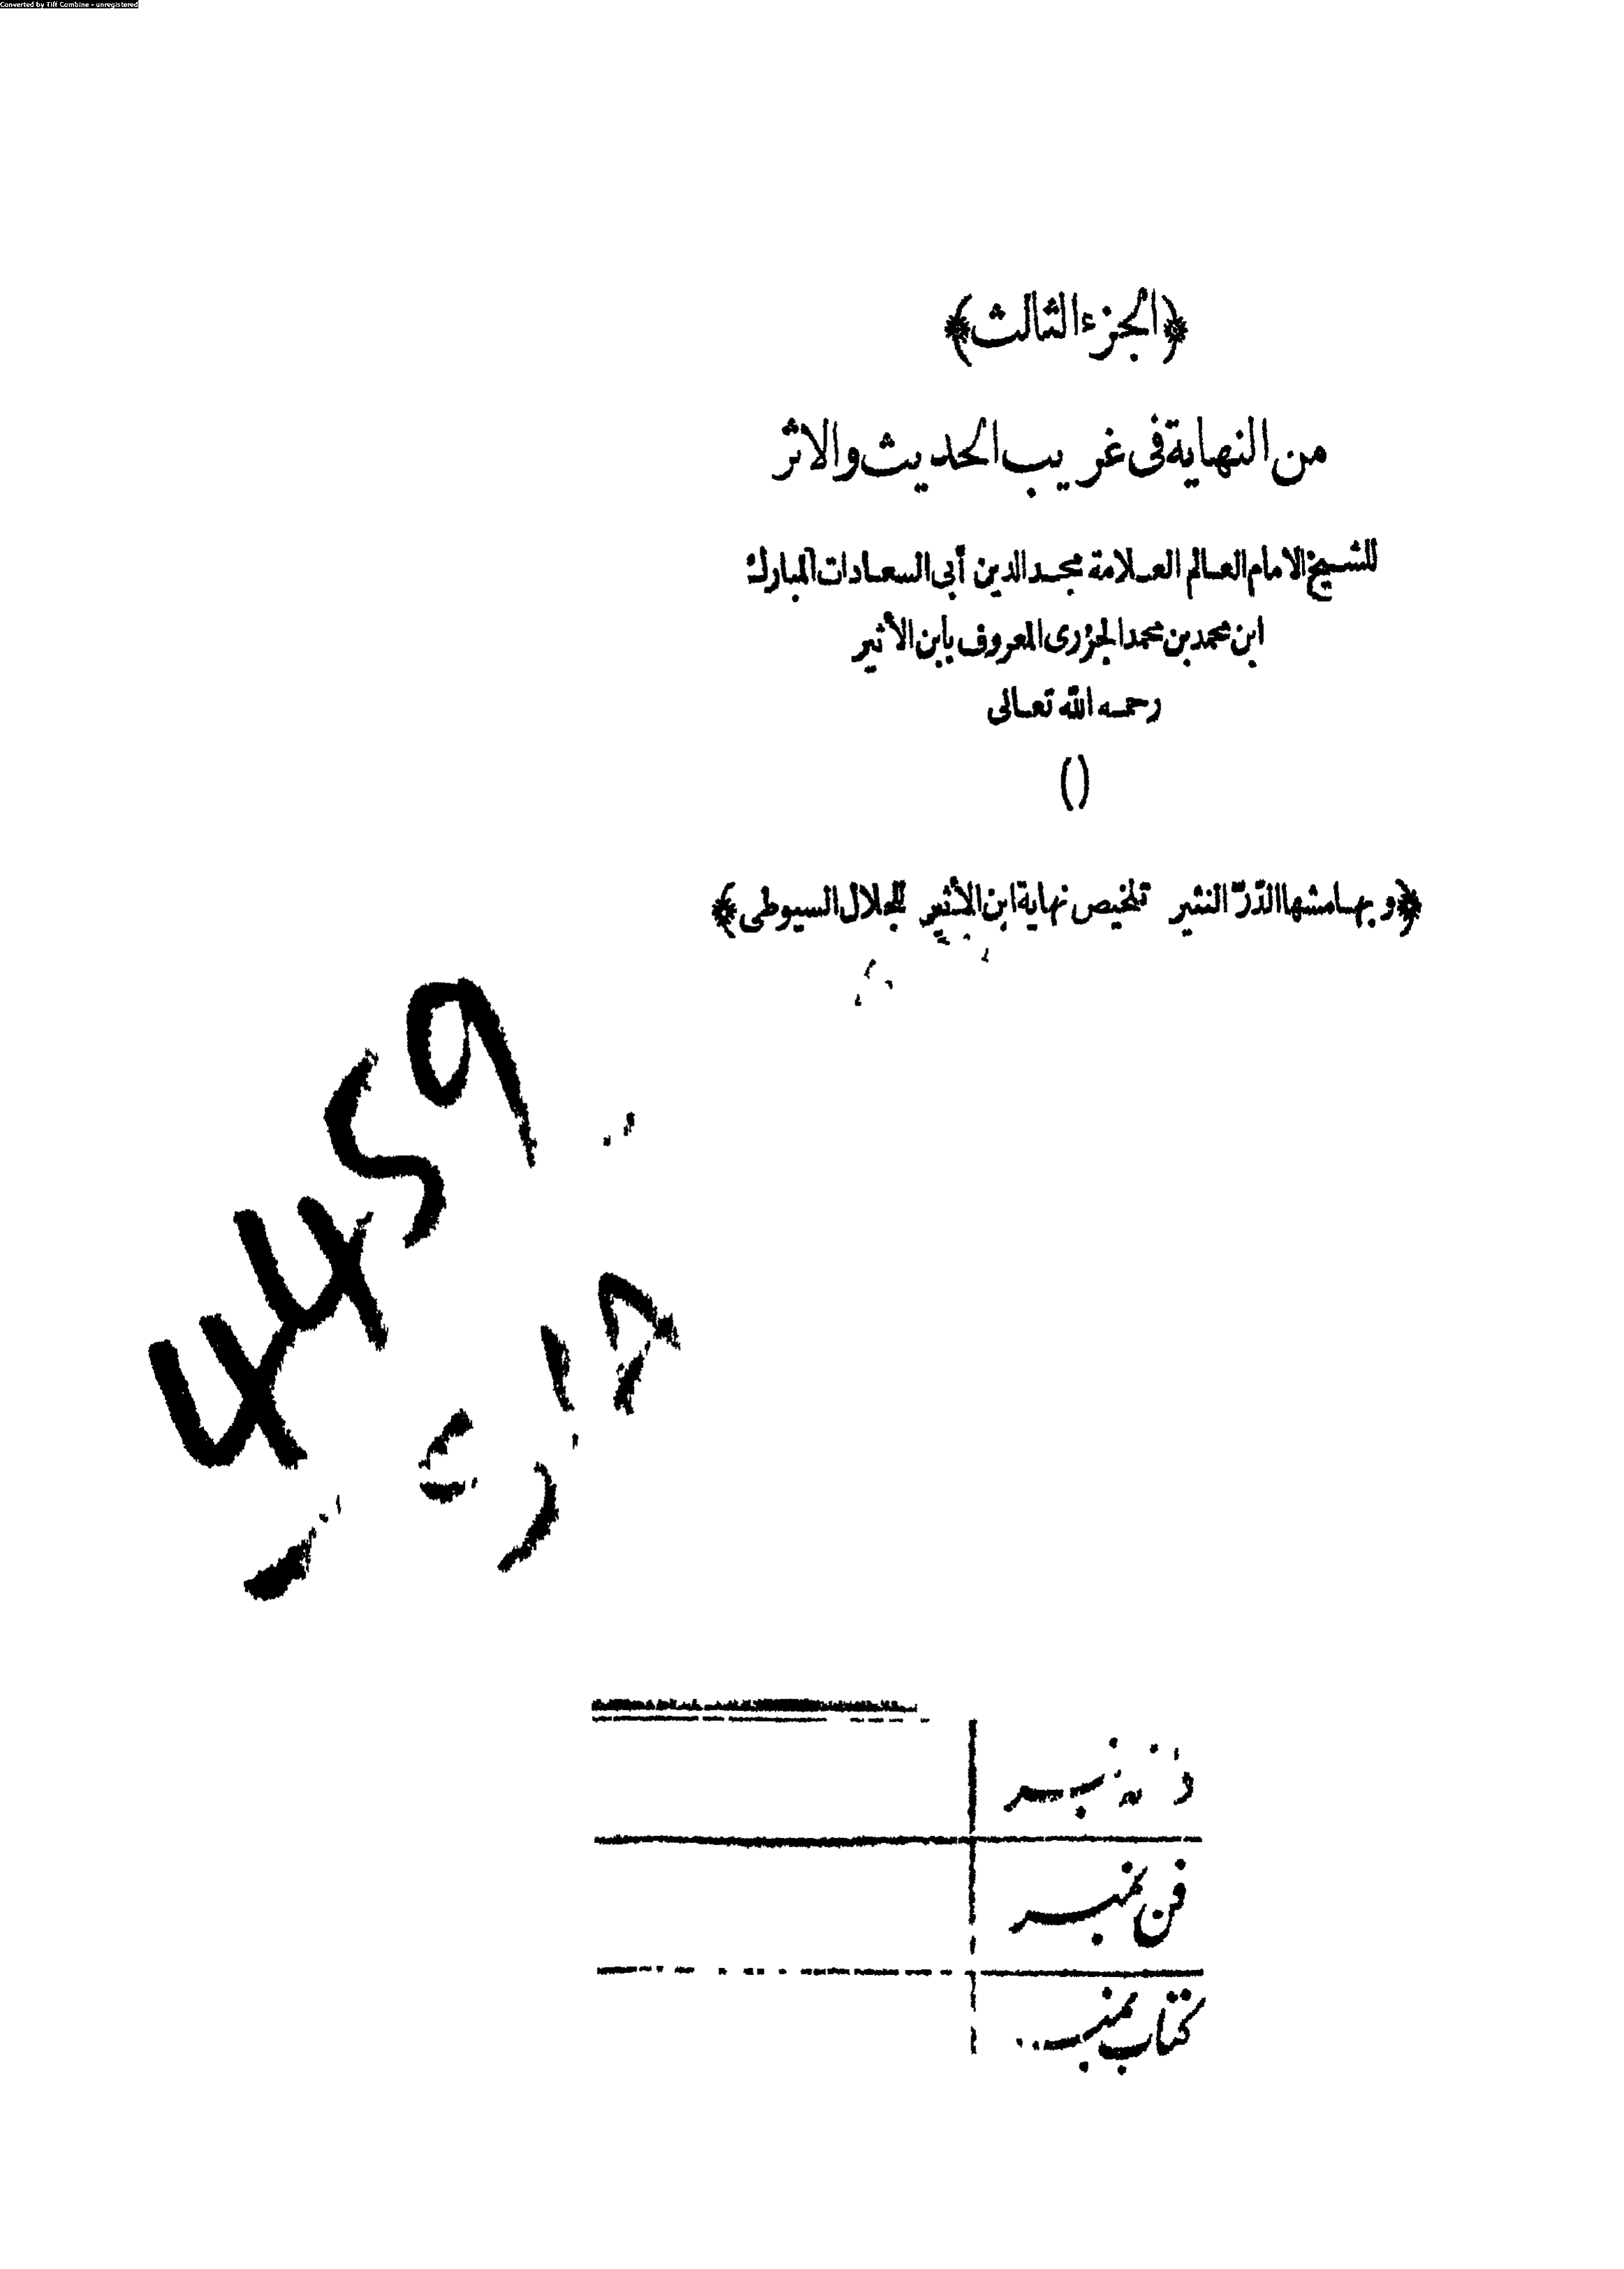 Converted by Tiff Combine - unregistered
﴿الجزء الثالث﴾
من النهاية فى غريب الحديث والاثر
للشيخ الامام العالم العلامة مجد الدين أبى السعادات المبارك
ابن محمد بن محمد الجزرى المعروف بابن الأثير
رحمه الله تعالى
()
﴿و بهامشها الدّرّ النثير تلخيص نهاية ابن الأثير للجلال السيوطى﴾
4459
فن نمبر
كتاب نمبر